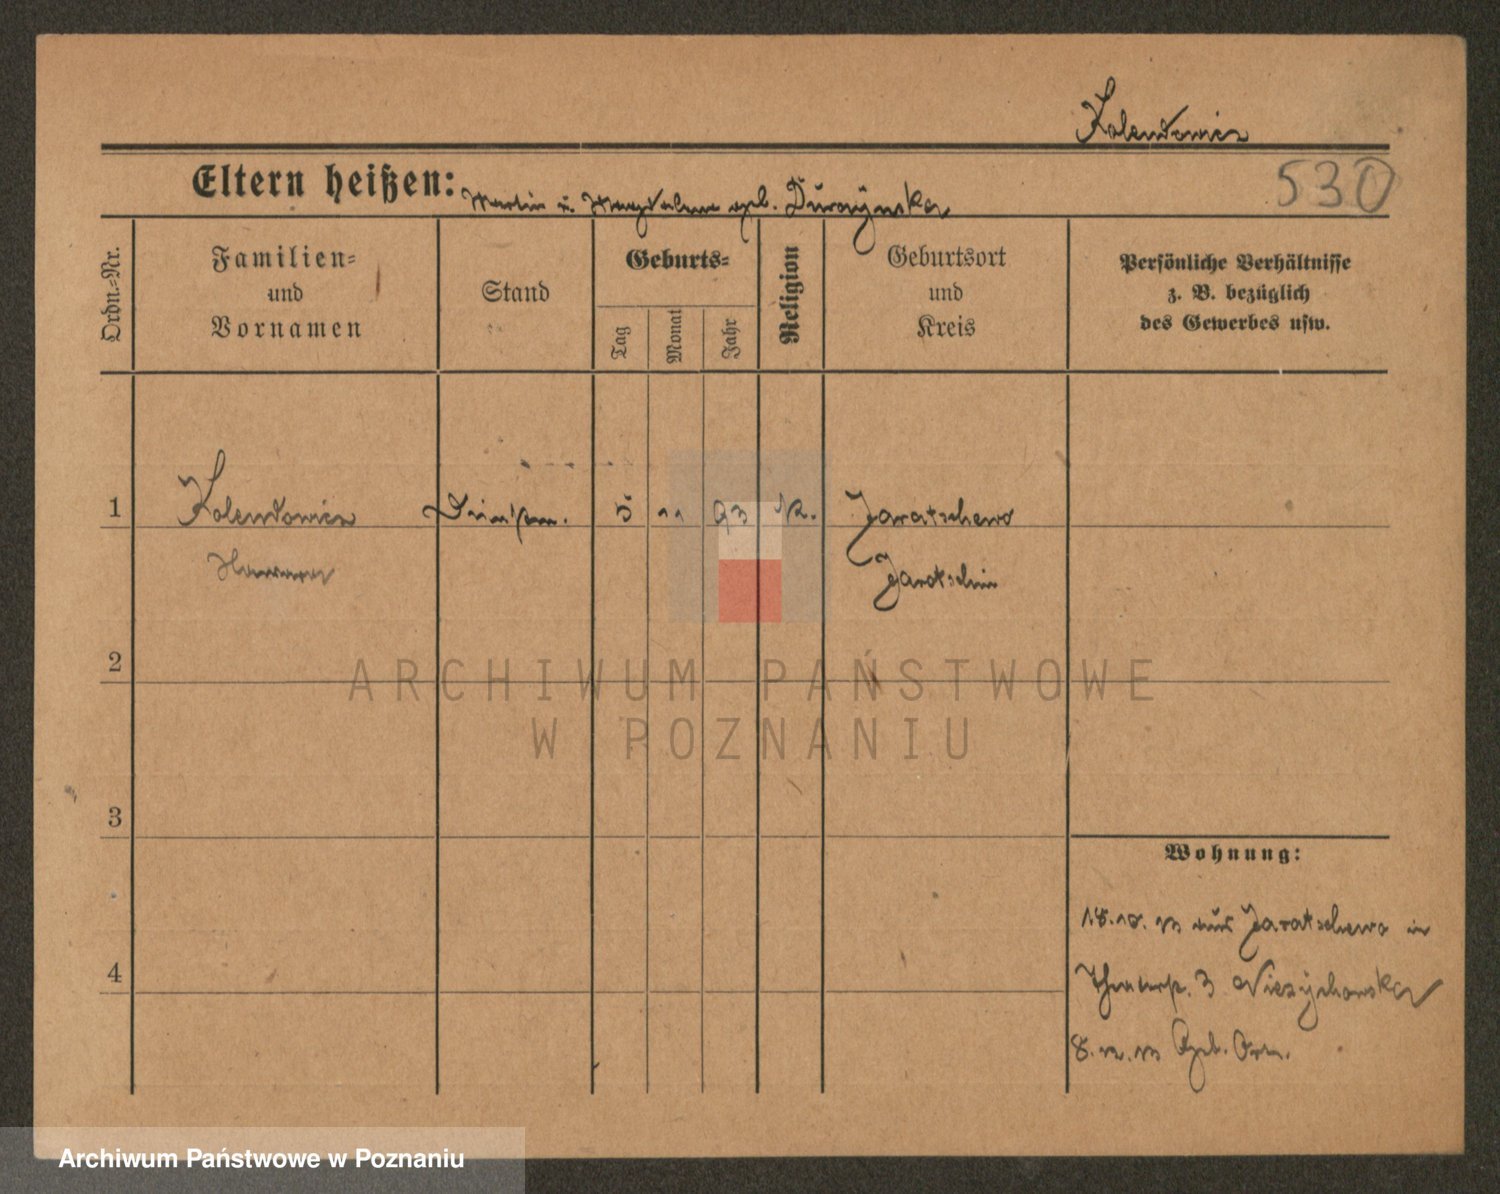 Kolendowicz
Eltern heißen: Martin u. Magdalena geb. Duraÿnska
530
Ordn.=Nr.
Familien=
und
Vornamen
Stand
Geburts=
Tag
Monat
Jahr
Religion
Geburtsort
und
Kreis
Persönliche Verhältnisse
z. B. bezüglich
des Gewerbes usw.
1 Kolendowicz 5 11 93 K. Jaratschewo
Jarotschin
2
ARCHIWUM PAŃSTWOWE
W POZNANIU
3
Wohnung:
18.10.13 aus Jaratschewo in
3
4
8.12.13 Geb. Ort.
Archiwum Państwowe w Poznaniu